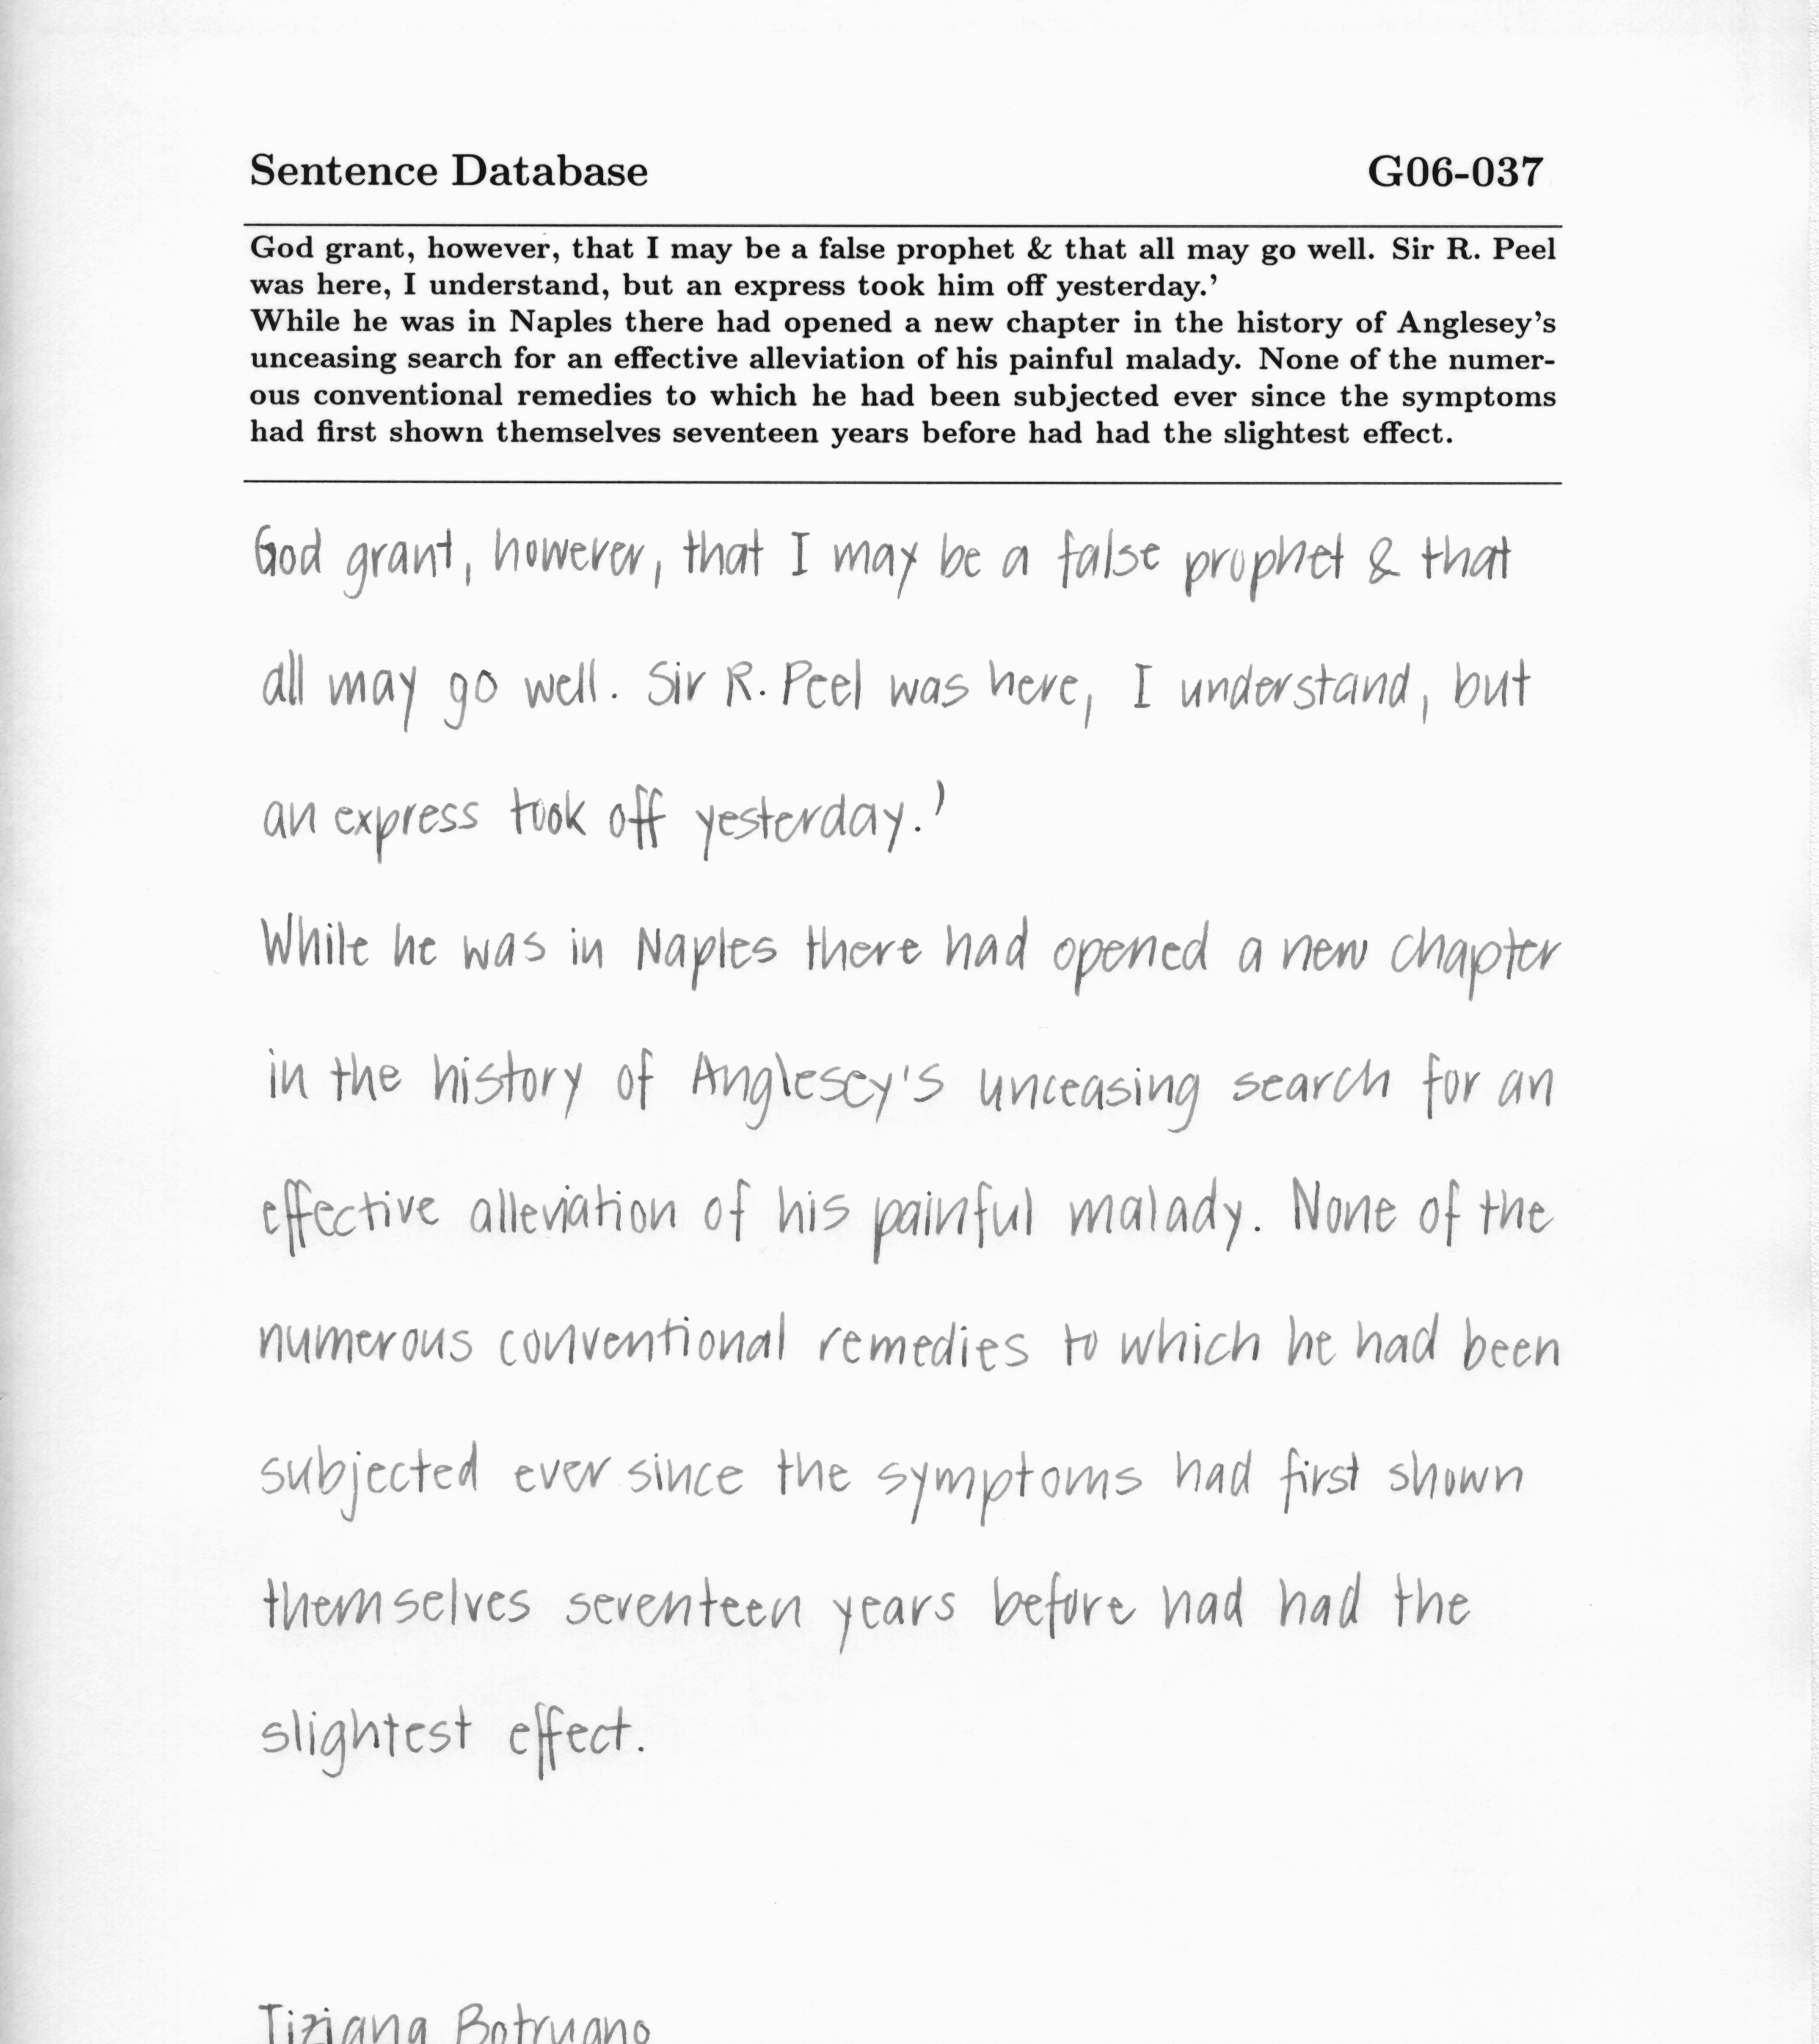 Sentence Database G06-037
God grant, however, that I may be a false prophet & that all may go well. Sir R. Peel
was here, I understand, but an express took him off yesterday.'
While he was in Naples there had opened a new chapter in the history of Anglesey's
unceasing search for an effective alleviation of his painful malady. None of the numer-
ous conventional remedies to which he had been subjected ever since the symptoms
had first shown themselves seventeen years before had had the slightest effect.
God grant, however, that I may be a false prophet & that
all may go well. Sir R. Peel was here, I understand, but
an express took off yesterday.'
While he was in Naples there had opened a new chapter
in the history of Anglesey's unceasing search for an
effective alleviation of his painful malady. None of the
numerous conventional remedies to which he had been
subjected ever since the symptoms had first shown
themselves seventeen years before had had the
slightest effect.
Tiziana Botrugno